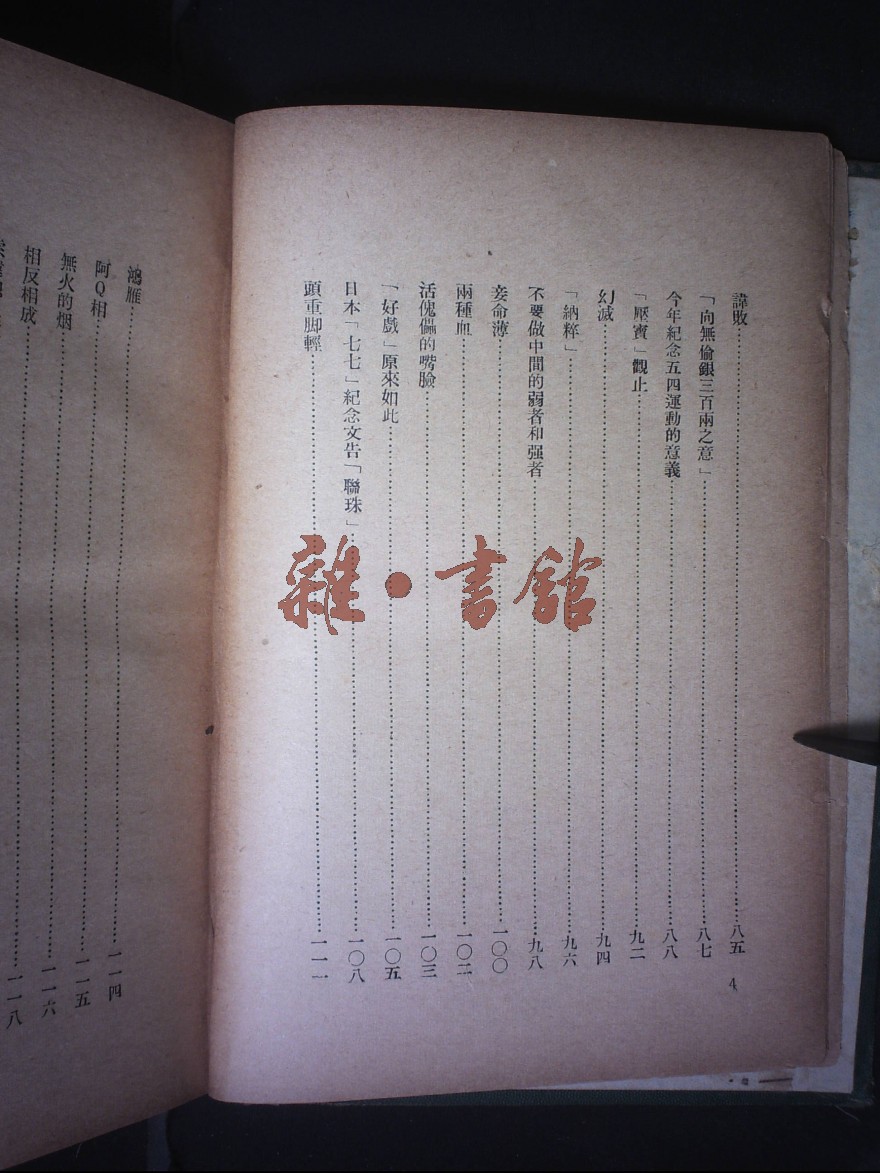 諱敗……八五
「向無偷銀三百兩之意」……八七
今年紀念五四運動的意義……八八
「壓寶」觀止……九二
幻滅……九四
「納粹」……九六
不要做中間的弱者和强者……九八
妾命薄……一〇〇
兩種血……一〇二
活傀儡的嘴臉……一〇三
「好戲」原來如此……一〇五
日本「七七」紀念文告「聯珠」……一〇八
頭重脚輕……一一一
4
鴻雁……一一四
阿Q相……一一五
無火的烟……一一六
相反相成……一一八
雜·書館